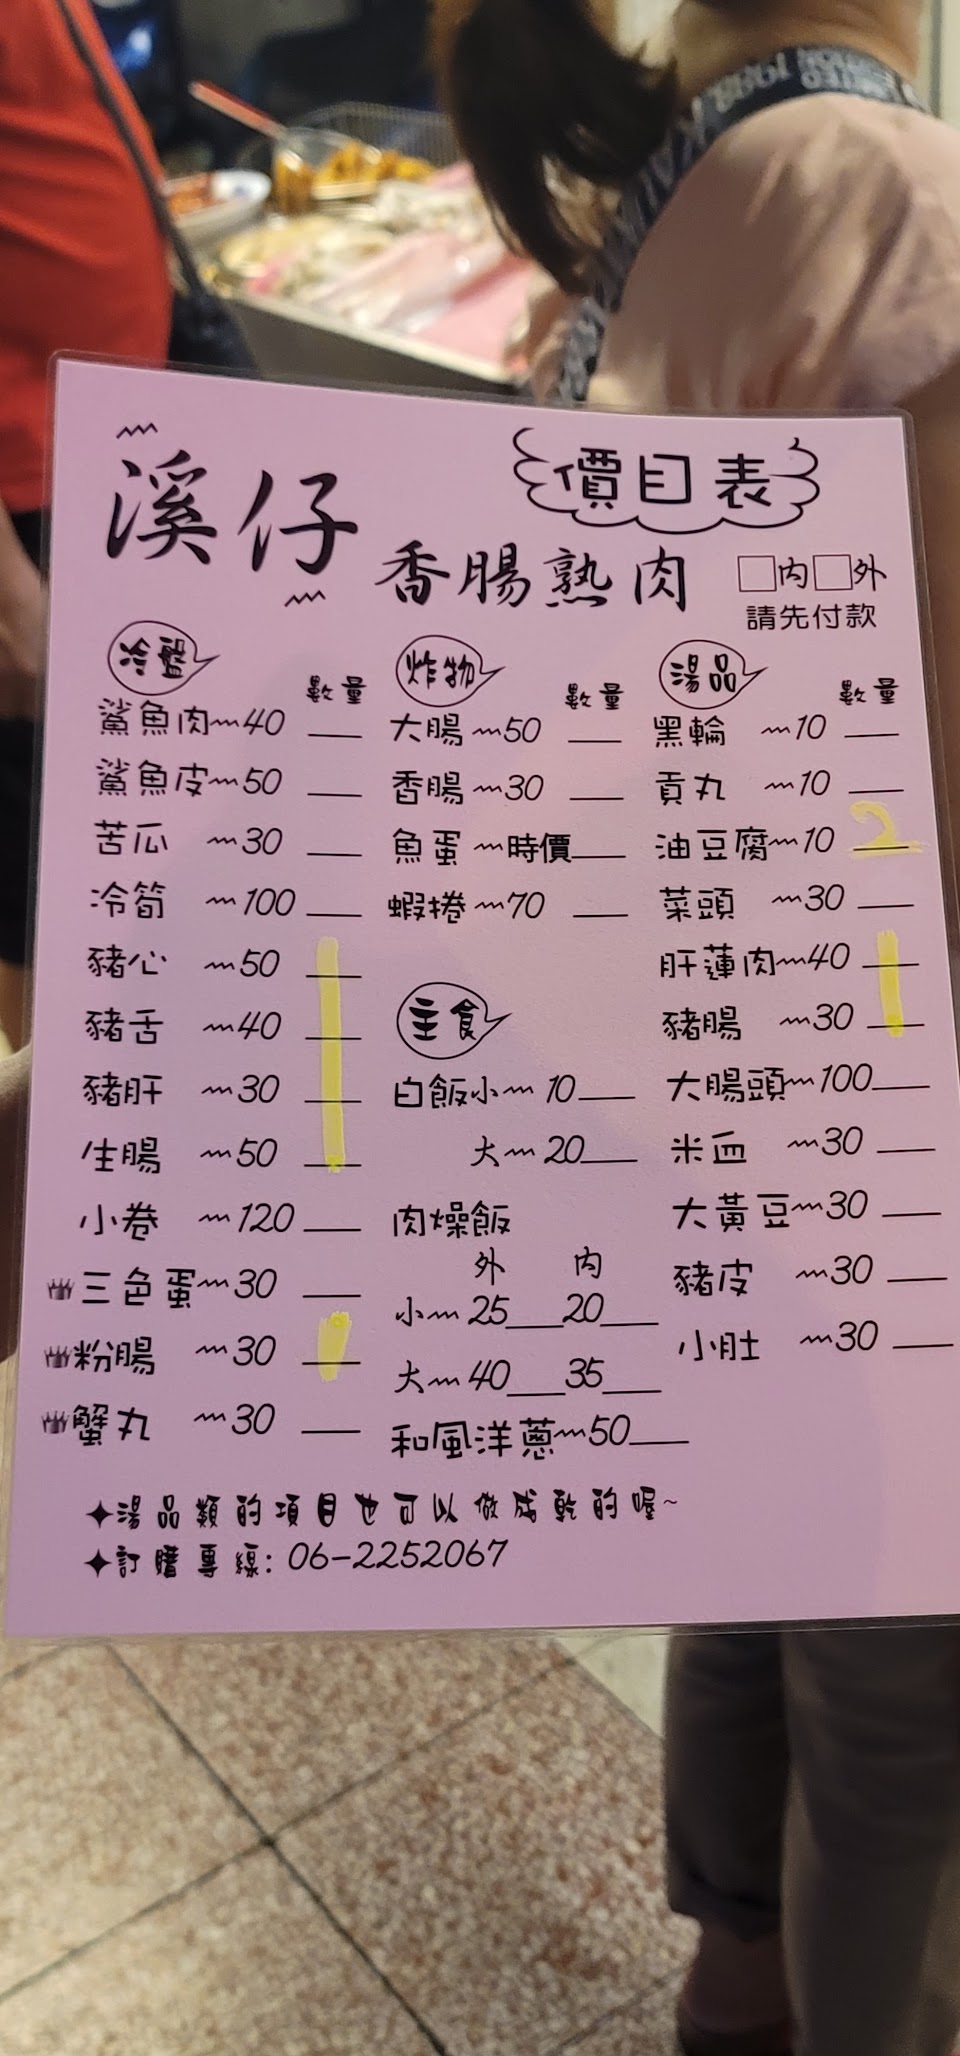 溪仔
價目表
香腸熟肉
□內□外
請先付款
冷盤 數量
鯊魚肉~40
鯊魚皮~50
苦瓜 ~30
冷筍 ~100
豬心 ~50
豬舌 ~40
豬肝 ~30
生腸 ~50
小卷 ~120
三色蛋~30
粉腸 ~30
蟹丸 ~30
炸物 數量
大腸~50
香腸~30
魚蛋~時價
蝦捲~70
主食
白飯小~10
大~20
肉燥飯
外 內
小~25 20
大~40 35
和風洋蔥~50
湯品 數量
黑輪 ~10
貢丸 ~10
油豆腐~10 2
菜頭 ~30
肝蓮肉~40
豬腸 ~30
大腸頭~100
米血 ~30
大黃豆~30
豬皮 ~30
小肚 ~30
✦湯品類的項目也可以做成乾的喔~
✦訂購專線: 06-2252067